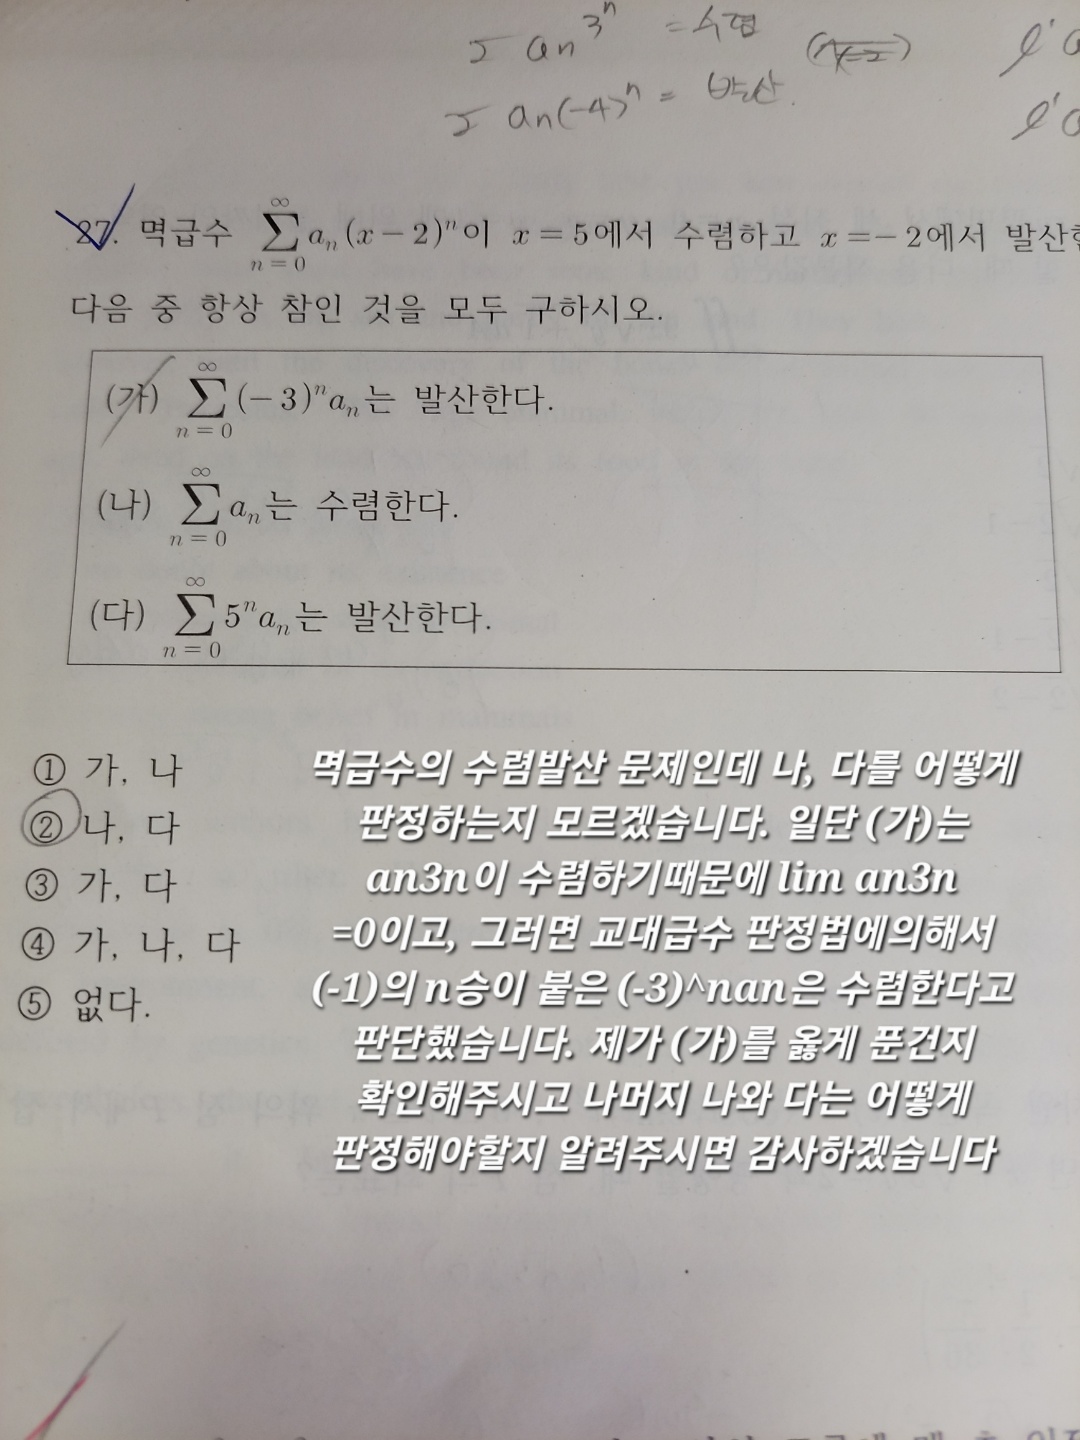 Σ an 3^n = 수렴
Σ an(-4)^n = 발산.
27. 멱급수 \sum_{n=0}^{∞} a_n (x-2)^n 이 x=5에서 수렴하고 x=-2에서 발산
다음 중 항상 참인 것을 모두 구하시오.
(가) \sum_{n=0}^{∞} (-3)^n a_n 는 발산한다.
(나) \sum_{n=0}^{∞} a_n 는 수렴한다.
(다) \sum_{n=0}^{∞} 5^n a_n 는 발산한다.
① 가, 나
② 나, 다
③ 가, 다
④ 가, 나, 다
⑤ 없다.
멱급수의 수렴발산 문제인데 나, 다를 어떻게
판정하는지 모르겠습니다. 일단 (가)는
an3n이 수렴하기때문에 lim an3n
=0이고, 그러면 교대급수 판정법에의해서
(-1)의 n승이 붙은 (-3)^nan은 수렴한다고
판단했습니다. 제가 (가)를 옳게 푼건지
확인해주시고 나머지 나와 다는 어떻게
판정해야할지 알려주시면 감사하겠습니다